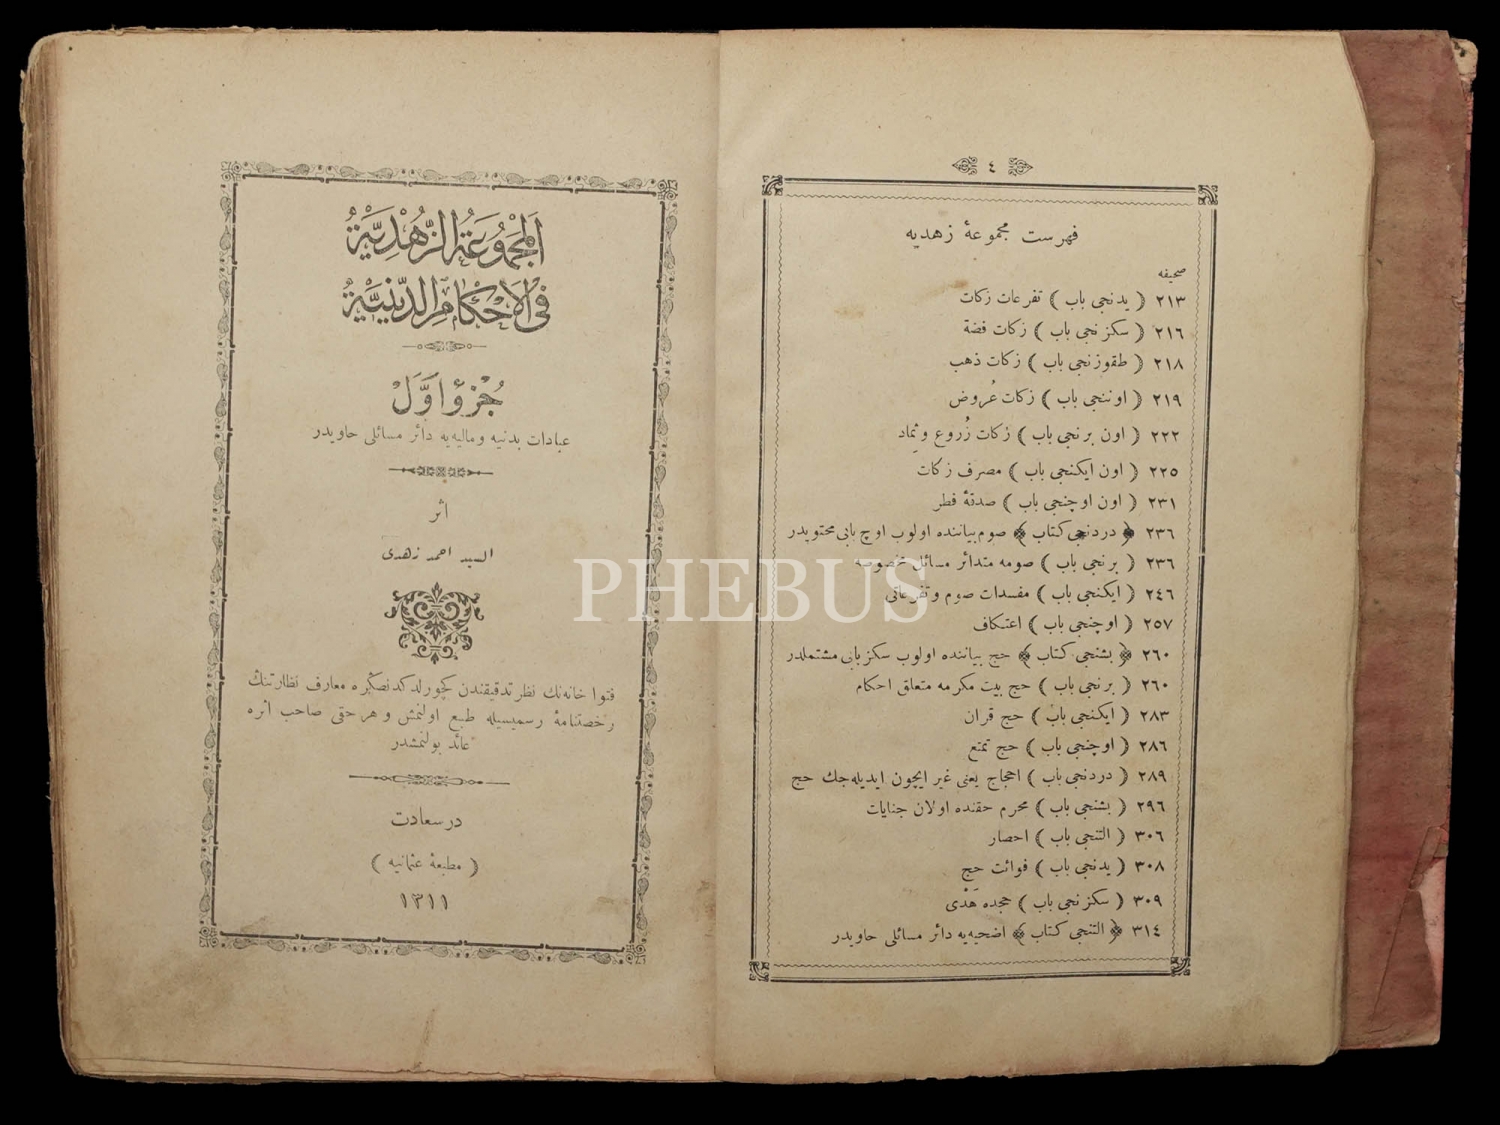 ٤
فهرست مجموعهٔ زهديه
صحيفه
٢١٣ ( يدنجى باب ) تفرعات زكات
٢١٦ ( سكزنجى باب ) زكات فضة
٢١٨ ( طقوزنجى باب ) زكات ذهب
٢١٩ ( اوننجى باب ) زكات عُروض
٢٢٢ ( اون برنجى باب ) زكات زُروع وثماد
٢٢٥ ( اون ايكنجى باب ) مصرف زكات
٢٣١ ( اون اوچنجى باب ) صدقهٔ فطر
٢٣٦ ﴿ دردنجى كتاب ﴾ صوم بياننده اولوب اوچ بابى محتويدر
٢٣٦ ( برنجى باب ) صومه متدائر مسائل مخصوصه
٢٤٦ ( ايكنجى باب ) مفسدات صوم وتفرعاتى
٢٥٧ ( اوچنجى باب ) اعتكاف
٢٦٠ ﴿ بشنجى كتاب ﴾ حج بياننده اولوب سكز بابى مشتملدر
٢٦٠ ( برنجى باب ) حج بيت مكرمه متعلق احكام
٢٨٣ ( ايكنجى باب ) حج قران
٢٨٦ ( اوچنجى باب ) حج تمتع
٢٨٩ ( دردنجى باب ) احجاج يعنى غير ايچون ايديله جك حج
٢٩٦ ( بشنجى باب ) محرم حقنده اولان جنايات
٣٠٦ ( التنجى باب ) احصار
٣٠٨ ( يدنجى باب ) فوائت حج
٣٠٩ ( سكزنجى باب ) حجده هَدْى
٣١٤ ﴿ التنجى كتاب ﴾ اضحيه يه دائر مسائلى حاويدر
اَلْمَجْمُوعَةُ الزُّهْدِيَّةُ
فِى الْاَحْكَامِ الدِّينِيَّةِ
جُزْؤ اَوَّلْ
عبادات بدنيه وماليه يه دائر مسائلى حاويدر
اثر
السيد احمد زهدى
فتوا خانه نك نظر تدقيقندن كچورلدكدنصكره معارف نظارتنك
رخصتنامهٔ رسميسيله طبع اولنمش و هر حقى صاحب اثره
عائد بولنمشدر
در سعادت
( مطبعهٔ عثمانيه )
١٣١١
PHEBUS